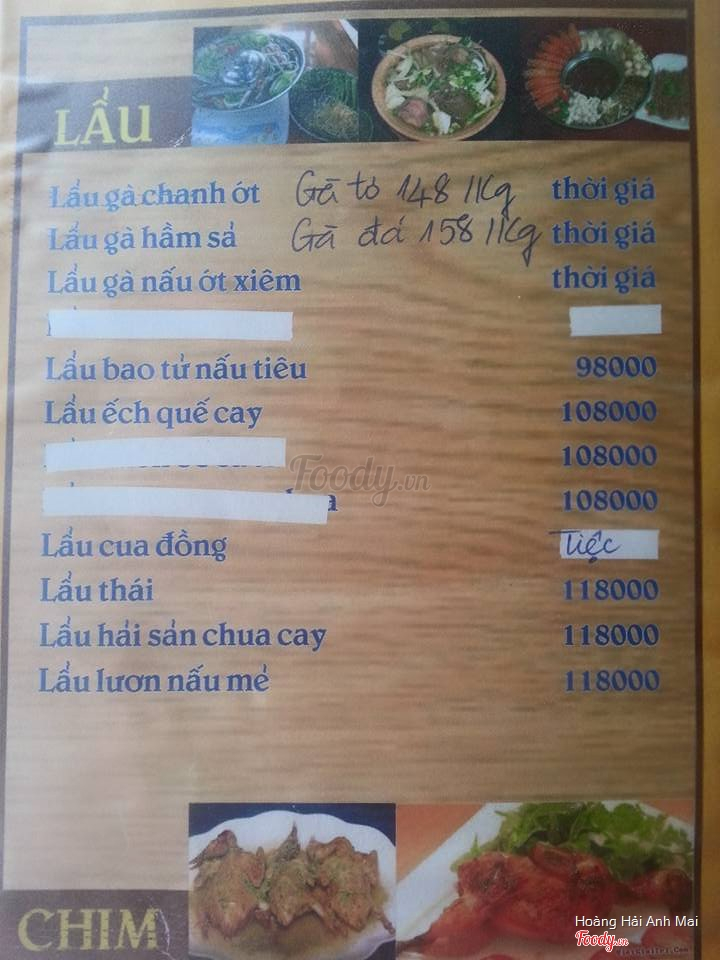 LẨU
Lẩu gà chanh ớt Gà ta 148 /1Kg thời giá
Lẩu gà hầm sả Gà đá 158 /1Kg thời giá
Lẩu gà nấu ớt xiêm thời giá
Lẩu bao tử nấu tiêu 98000
Lẩu ếch quế cay 108000
108000
108000
Foody.vn
Lẩu cua đồng Tiệc
Lẩu thái 118000
Lẩu hải sản chua cay 118000
Lẩu lươn nấu mẻ 118000
CHIM
Hoàng Hải Anh Mai
Foody.vn